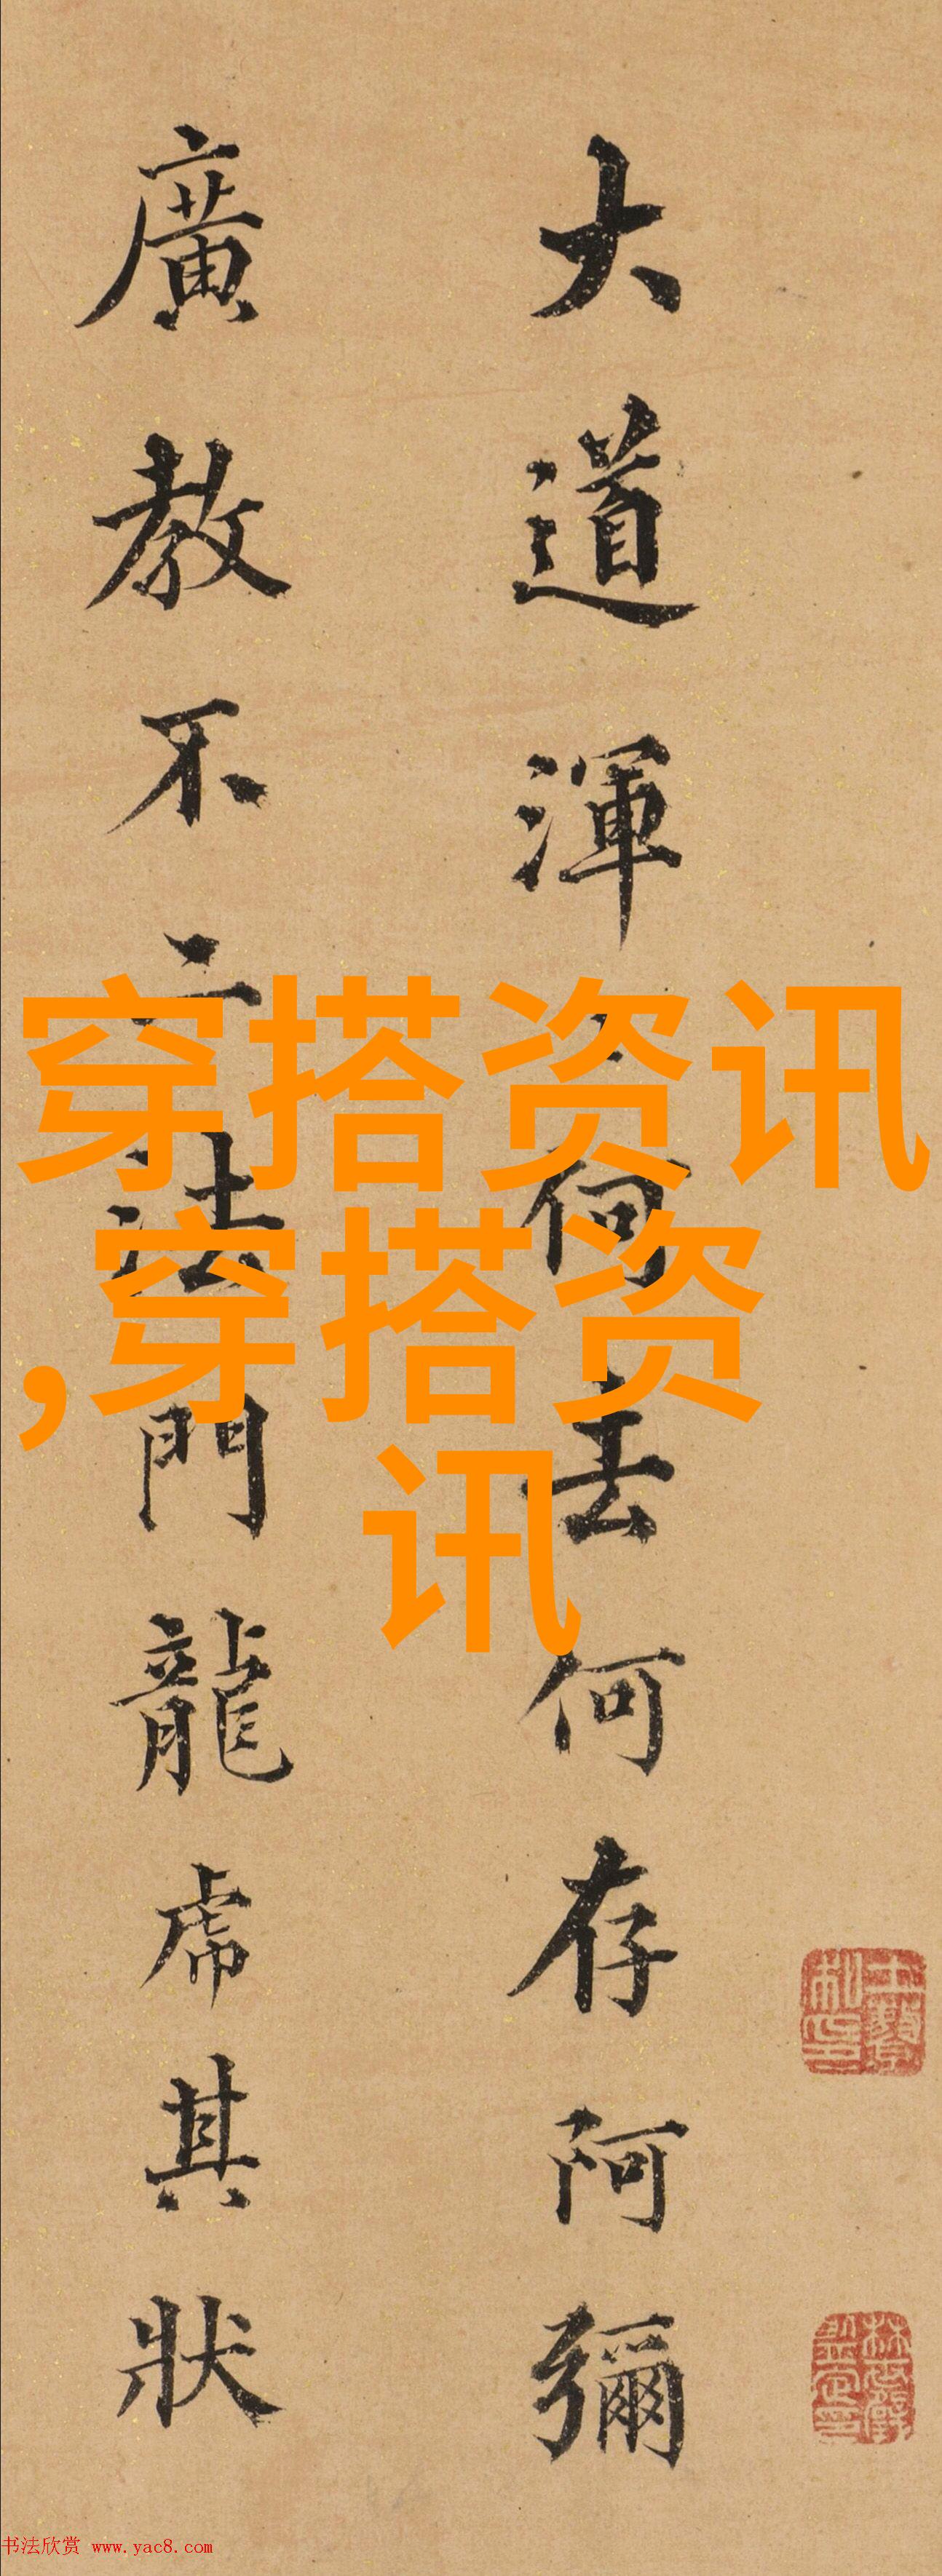 大道渾何去何存阿彌
廣教不二法門龍虎其狀
穿搭资讯
,穿搭资
讯
书法欣赏 www.yac8.com